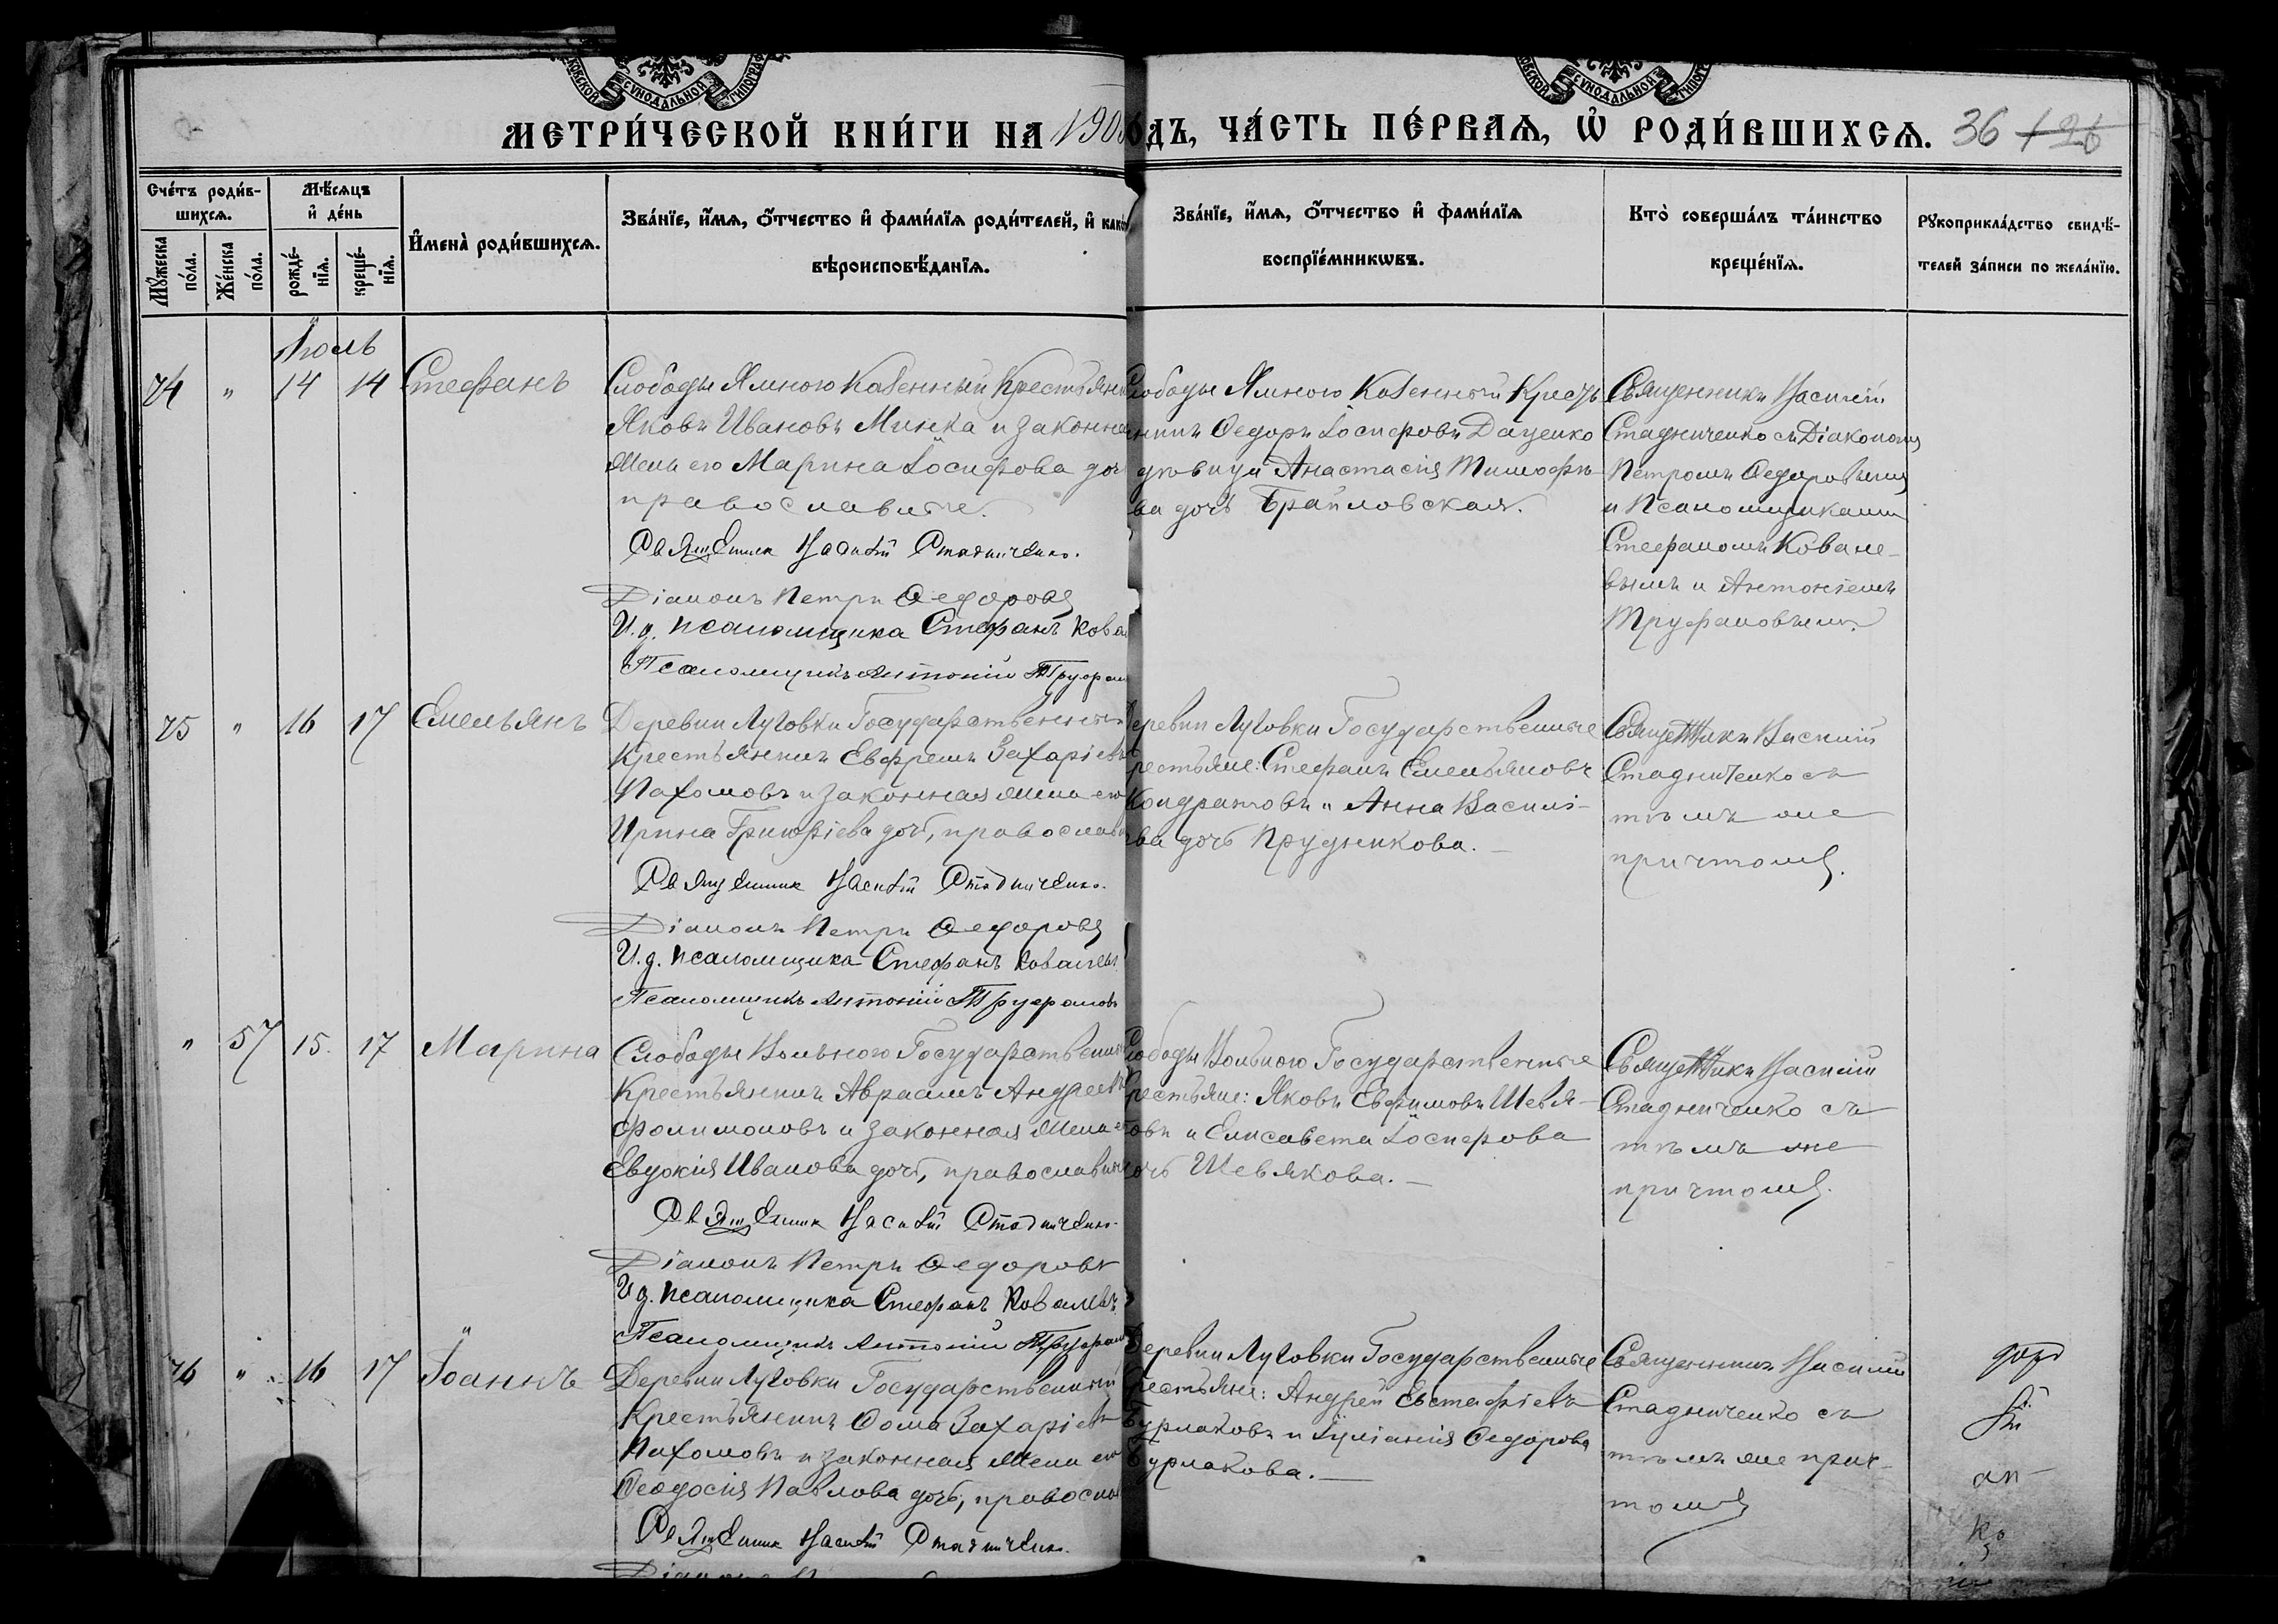 МОСКОВСКОЙ СУНОДАЛЬНОЙ ТИПОГРАФ
МОСКОВСКОЙ СУНОДАЛЬНОЙ ТИПОГРАФ
МЕТРИ́ЧЕСКОЙ КНИ́ГИ НА 190 ОДЪ, ЧА́СТЬ ПЕ́РВАѦ, Ѡ҆ РОДИ́ВШИХСѦ. 36 126
Сче́тъ роди́в-
шихсѧ.
Мꙋ́жеска по́ла.
Же́нска по́ла.
Мѣ́сѧцъ
и҆ де́нь
рожде́-
нїѧ.
креще́-
нїѧ.
И҆мена̀ роди́вшихсѧ.
Зва́нїе, и҆́мѧ, ѻ҆́тчество и҆ фами́лїѧ роди́телей, и҆ како
вѣроисповѣ́данїѧ.
Зва́нїе, и҆́мѧ, ѻ҆́тчество и҆ фами́лїѧ
воспрїе́мникѡвъ.
Кто̀ соверша́лъ та́инство
креще́нїѧ.
Рꙋкоприкла́дство свидѣ́-
телей за́писи по жела́нїю.
Іюль
74 " 14 14 Стефанъ
Слободы Ямного Казенный Крестьянин
Яковъ Ивановъ Минка и законная
жена его Марина Іосифова доч
православные.
Священник Василій Стадниченко.
Діаконъ Петръ Ѳедоровъ
И.д. псаломщика Стефанъ Кова
Псаломщикъ Антоній Труфан
Слободы Ямного Казенный Кресть
нинъ Ѳедоръ Іосифовъ Даценко
дѣвица Анастасія Тимофѣ-
ва дочь Брайловская.
Священникъ Василій
Стадниченко съ Діакономъ
Петромъ Ѳедоровымъ
и Псаломщиками
Стефаномъ Ковале-
вымъ и Антоніемъ
Труфановымъ.
75 " 16 17 Емельянъ
Деревни Луговки Государственный
Крестьянинъ Евфремъ Захаріевъ
Пахомовъ и законная жена его
Ирина Григоріева дочь, православн
Священник Василій Стадниченко.
Діаконъ Петръ Ѳедоровъ
И.д. псаломщика Стефанъ Ковалевъ
Псаломщикъ Антоній Труфановъ
Деревни Луговки Государственные
рестьяне: Стефанъ Емельяновъ
Кондратовъ и Анна Василі-
ва дочь Прудникова.—
Священникъ Василій
Стадниченко съ
тѣмъ же
причтомъ.
" 57 15. 17 Марина
Слободы Вольного Государственный
Крестьянинъ Авраамъ Андреевъ
Филимоновъ и законная жена е
Евдокія Иванова дочь, православные
Священник Василій Стадниченко.
Діаконъ Петръ Ѳедоровъ
И д. псаломщика Стефанъ Ковалевъ
Псаломщикъ Антоній Труфан
Слободы Вольного Государственные
рестьяне: Яковъ Евфимовъ Шевя-
овъ и Елисавета Іосифова
очь Шевякова.—
Священникъ Василій
Стадниченко съ
тѣмъ же
причтомъ.
76 " 16 17 Іоаннъ
Деревни Луговки Государственный
Крестьянинъ Ѳома Захаріев
Пахомовъ и законная жена его
Ѳеодосія Павлова дочь, правосла
Священник Василій Стадниченко.
Деревни Луговки Государственные
рестьяне: Андрей Евстафіевъ
Бурлаковъ и Іуліанія Ѳедорова
Бурлакова.—
Священникъ Василій
Стадниченко съ
тѣмъ же прич-
томъ